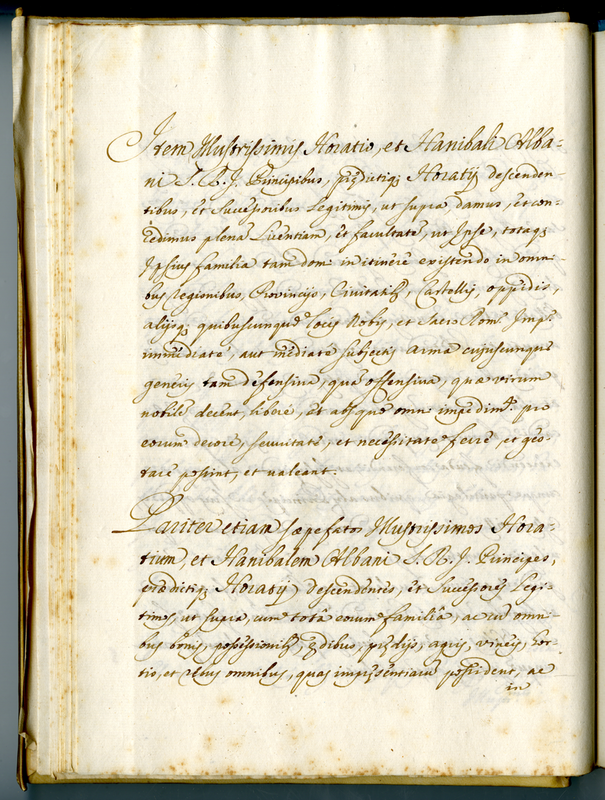 Item Illustrissimis Horatio, et Hanibali Alba-
ni S. R. J. Principibus, prædictiq; Horatij descenden-
tibus, et Successoribus Legitimis, ut supra damus, et con-
cedimus plenã Licentiam, et facultatē, ut Ipse, totaq;
Ipsius familia tam domi in itinere existendo in omni-
bus Regionibus, Provincijs, Civitatib; Castellis, oppidis,
alijsq; quibuscunque locis Nobis, et Sacro Rom. Imp.
immediate, aut mediate subjectis arma cujuscunque
generis tam defensiva, quã offensiva, quæ virum
nobilē decent, liberē, et absque omni impedim.to pro
eorum decore, securitate, et necessitate ferre, et ges-
tare possint, et valeant.
Pariter etiam sæpefatos Illustrissimos Hora-
tium, et Hanibalem Albani S. R. J. Principes,
prædictiq; Horatij descendentes, et Successores Legi-
timos, ut supra, cum totâ eorum familiâ, ac cū omni-
bus bonis, possessionib; ædibus, prædijs, agris, vineis, hor-
tis, et rebus omnibus, quas impræsentiarũ possident, ac
in